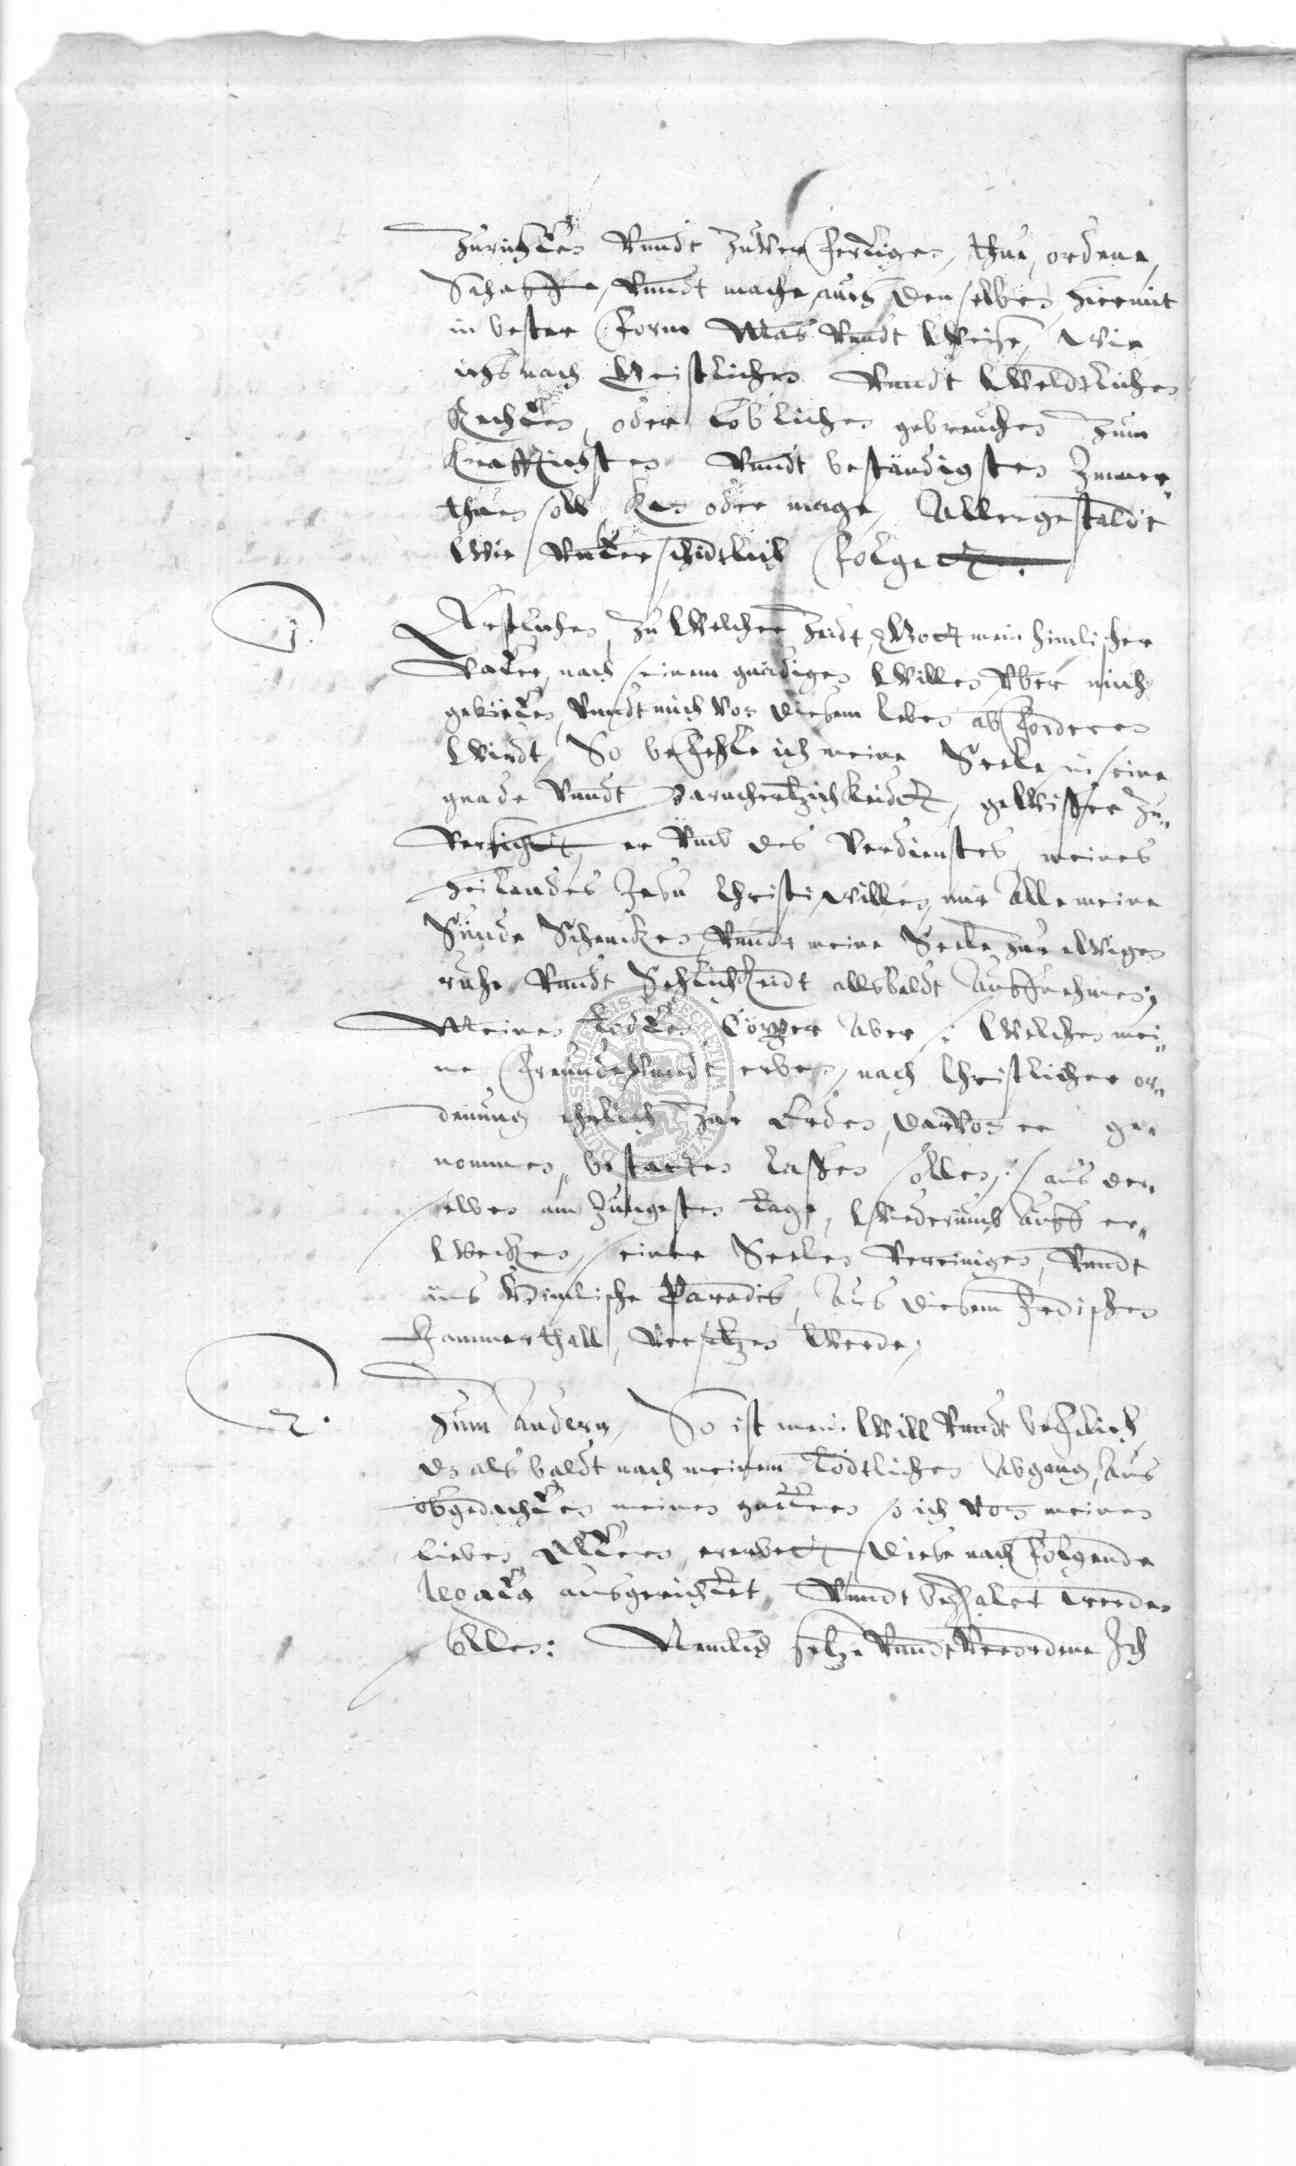 Zurichten Unndt Zuverfertigen, thue, ordene,
Schaffe, Unndt mache, auch denselben hiermit
in bester Form Mas Unndt Weise, wie
ichs nach Geistlichen Unndt Weldtlichen
Rechten, oder löblichen gebreuchen Zum
krefftigsten Unndt bestendigsten Immer
thuen soll kan oder mage, Allergestaldt
Wie Unterschidtlich Folgett.
1.
Erstlichen, Zu Welcher Zeidt, Gott mein himlischer
Vater, nach seinem gnädigen Willen Uber mich
gebieten, Unndt mich von diesem leben abfordern
Wirdt, So befehle ich meine Seele in seine
gnade Unndt Barmhertzichkeidtt, gewisser Zu„
versicht, er Umb des Verdienstes, meines
Heilandes Jesu Christi willen, mir Alle meine
Sünde Schencken, Unndt meine Seele Zur ewigen
ruhe Unndt Sehlichkeidt allsbaldt Auffnehmen,
Meinen todten Cörper Aber /: Welchen mei„
ne Freunde Unndt erben, nach Christlicher or„
denung ehrlich Zur Erden, darvon er ge„
nommen, bestatten lassen sollen :/ aus der„
selben am Jungesten tage, Wiederumb Auff er„
Wecken, seiner Seelen Vereinigen, Unndt
ins himlische Paradis, Aus diesem Irdischen
Jammerthall, Versetzen Werde,
2.
Zum Andern, So ist mein Will Unndt befehlich
Ds als baldt nach meinem tödtlichen Abgang, Aus
obgedachten meinen guttern, so ich von meinen
lieben Eltern ererbett, diese nachfolgende
legata ausgerichtet, Unndt bezhalet werden
sollen: Nemlich setze Unndt Verordene Ich